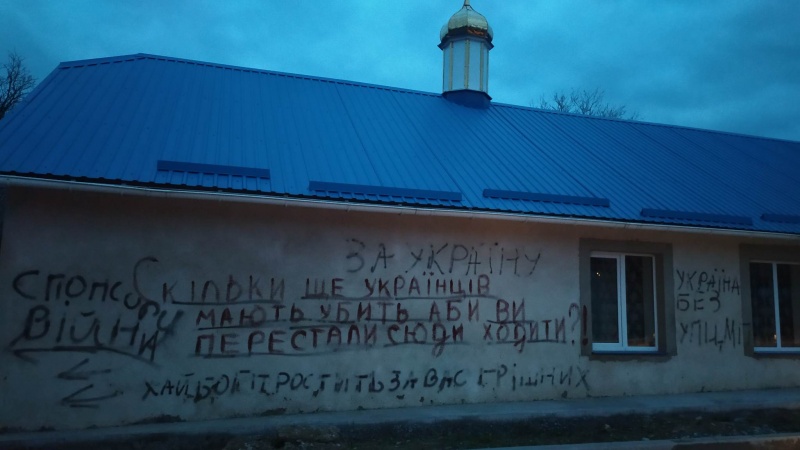 ЗА УКРАЇНУ
СПОНСОРИ
ВІЙНИ
СКІЛЬКИ ЩЕ УКРАЇНЦІВ
МАЮТЬ УБИТЬ АБИ ВИ
ПЕРЕСТАЛИ СЮДИ ХОДИТИ?!
ХАЙ БОГ ПРОСТИТЬ ЗА ВАС ГРІШНИХ
УКРАЇНА
БЕЗ
УПЦ МП